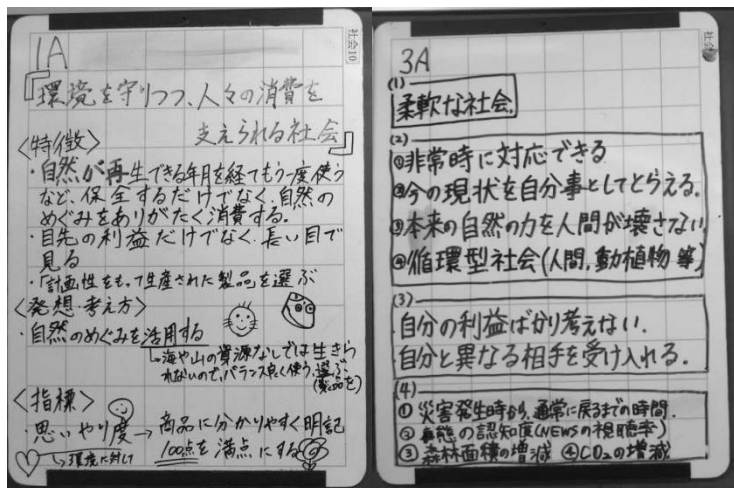 1A
社会10
『環境を守りつつ、人々の消費を
支えられる社会』
〈特徴〉
・自然が再生できる年月を経てもう一度使う
など、保全するだけでなく、自然の
めぐみをありがたく消費する。
・目先の利益だけでなく、長い目で
見る
・「計画性をもって生産された製品」を選ぶ
〈発想・考え方〉
・自然のめぐみを活用する
海や山の資源なしでは生きら
れないので、バランス良く使う、選ぶ
(製品を)
〈指標〉
・思いやり度→商品に分かりやすく明記
→環境に対して
100点を満点にする
3A
社会
(1)
柔軟な社会.
(2)
①非常時に対応できる
②今の現状を自分事としてとらえる.
③本来の自然の力を人間が壊さない
④循環型社会(人間,動植物 等)
(3)
自分の利益ばかり考えない.
自分と異なる相手を受け入れる.
(4)
① 災害発生時から、通常に戻るまでの時間.
② 実態の認知度(NEWSの視聴率)
③ 森林面積の増減 ④CO₂の増減